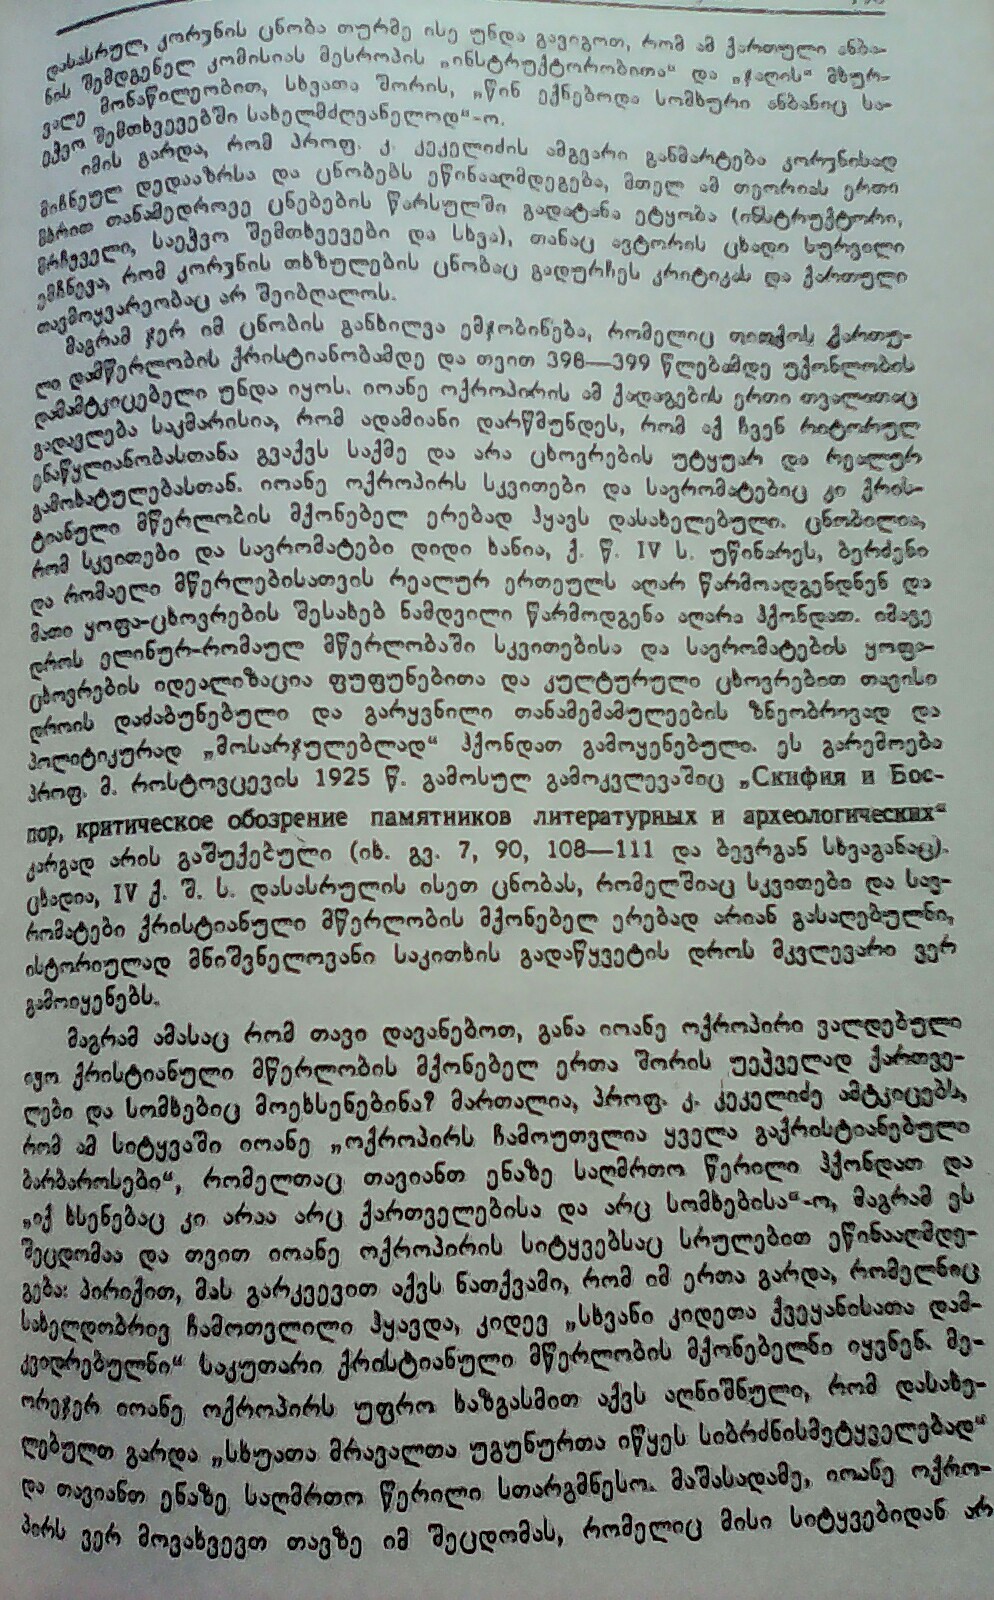 დასასრულ, კორჳნის ცნობა თურმე ისე უნდა გავიგოთ, რომ ამ ქართული ანბა-
ნის შემდგენელ კომისიას მესროპის „ინსტრუქტორობითა“ და „ჯაღის“ მხურ-
ვალე მონაწილეობით, სხვათა შორის, „წინ ექნებოდა სომხური ანბანიც სა-
ეჭვო შემთხვევებში სახელმძღვანელოდ“-ო.
იმის გარდა, რომ პროფ. კ. კეკელიძის ამგვარი განმარტება კორჳნისად
მიჩნეულ დედააზრსა და ცნობებს ეწინააღმდეგება, მთელ ამ თეორიას ერთი
მხრით თანამედროვე ცნებების წარსულში გადატანა ეტყობა (ინსტრუქტორი,
მრჩეველი, საეჭვო შემთხვევები და სხვა), თანაც ავტორის ცხადი სურვილი
ემჩნევა, რომ კორჳნის თხზულების ცნობაც გადურჩეს კრიტიკას და ქართული
თავმოყვარეობაც არ შეიბღალოს.
მაგრამ ჯერ იმ ცნობის განხილვა ემჯობინება, რომელიც თითქოს ქართუ-
ლი დამწერლობის ქრისტიანობამდე და თვით 398—399 წლებამდე უქონლობის
დამამტკიცებელი უნდა იყოს. იოანე ოქროპირის ამ ქადაგების ერთი თვალითაც
გადავლება საკმარისია, რომ ადამიანი დარწმუნდეს, რომ აქ ჩვენ რიტორულ
ენაწყლიანობასთანა გვაქვს საქმე და არა ცხოვრების უტყუარ და რეალურ
გამოხატულებასთან. იოანე ოქროპირს სკვითები და სავრომატებიც კი ქრის-
ტიანული მწერლობის მქონებელ ერებად ჰყავს დასახელებული. ცნობილია,
რომ სკვითები და სავრომატები დიდი ხანია, ქ. წ. IV ს. უწინარეს, ბერძენი
და რომაელი მწერლებისათვის რეალურ ერთეულს აღარ წარმოადგენდნენ და
მათი ყოფა-ცხოვრების შესახებ ნამდვილი წარმოდგენა აღარა ჰქონდათ. იმავე
დროს ელინურ-რომაულ მწერლობაში სკვითებისა და სავრომატების ყოფა-
ცხოვრების იდეალიზაცია ფუფუნებითა და კულტურული ცხოვრებით თავისი
დროის დაძაბუნებული და გარყვნილი თანამემამულეების ზნეობრივად და
პოლიტიკურად „მოსარჯულებლად“ ჰქონდათ გამოყენებული. ეს გარემოება
პროფ. მ. როსტოვცევის 1925 წ. გამოსულ გამოკვლევაშიც „Скифия и Бос-
пор, критическое обозрение памятников литературных и археологических“
კარგად არის გაშუქებული (იხ. გვ. 7, 90, 108—111 და ბევრგან სხვაგანაც).
ცხადია, IV ქ. შ. ს. დასასრულის ისეთ ცნობას, რომელშიაც სკვითები და სავ-
რომატები ქრისტიანული მწერლობის მქონებელ ერებად არიან გასაღებულნი,
ისტორიულად მნიშვნელოვანი საკითხის გადაწყვეტის დროს მკვლევარი ვერ
გამოიყენებს.
მაგრამ ამასაც რომ თავი დავანებოთ, განა იოანე ოქროპირი ვალდებული
იყო ქრისტიანული მწერლობის მქონებელ ერთა შორის უეჭველად ქართვე-
ლები და სომხებიც მოეხსენებინა? მართალია, პროფ. კ. კეკელიძე ამტკიცებს,
რომ ამ სიტყვაში იოანე „ოქროპირს ჩამოუთვლია ყველა გაქრისტიანებული
ბარბაროსები“, რომელთაც თავიანთ ენაზე საღმრთო წერილი ჰქონდათ და
„იქ ხსენებაც კი არაა არც ქართველებისა და არც სომხებისა“-ო, მაგრამ ეს
შეცდომაა და თვით იოანე ოქროპირის სიტყვებსაც სრულებით ეწინააღმდე-
გება: პირიქით, მას გარკვევით აქვს ნათქვამი, რომ იმ ერთა გარდა, რომელნიც
სახელდობრივ ჩამოთვლილი ჰყავდა, კიდევ „სხვანი კიდეთა ქვეყანისათა დამ-
კვიდრებულნი“ საკუთარი ქრისტიანული მწერლობის მქონებელნი იყვნენ. მე-
ორეჯერ იოანე ოქროპირს უფრო ხაზგასმით აქვს აღნიშნული, რომ დასახე-
ლებულთ გარდა „სხუათა მრავალთა უგუნურთა იწყეს სიბრძნისმეტყველებად“
და თავიანთ ენაზე საღმრთო წერილი სთარგმნესო. მაშასადამე, იოანე ოქრო-
პირს ვერ მოვახვევთ თავზე იმ შეცდომას, რომელიც მისი სიტყვებიდან არ